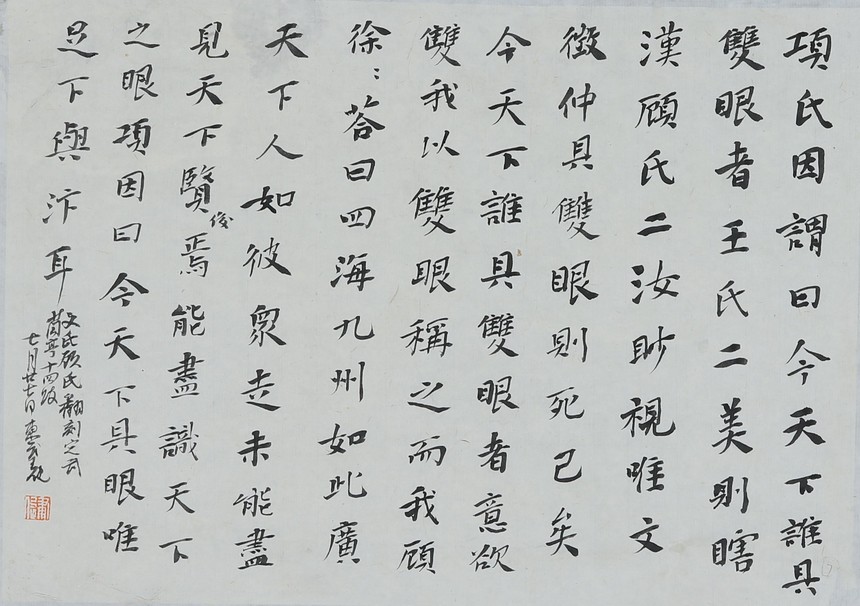 項氏因謂曰今天下誰具
雙眼者王氏二美則瞎
漢顧氏二汝眇視唯文
徵仲具雙眼則死已矣
今天下誰具雙眼者意欲
雙我以雙眼稱之而我顧
徐:荅曰四海九州如此廣
天下人如彼衆走未能盡
見天下賢俊焉能盡識天下
之眼項因曰今天下具眼唯
足下與汴耳
文氏顧氏翻刻定武
蘭亭十四跋
七月廿七日